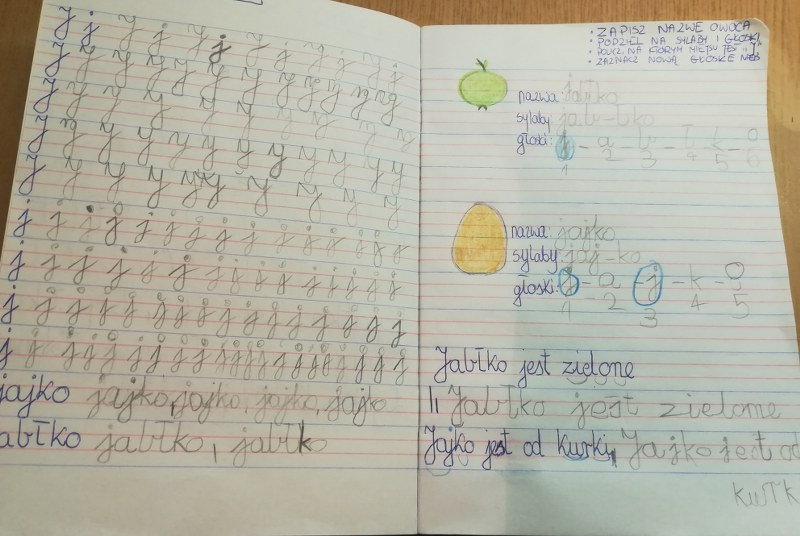 j j j j j j j j j j j j
y y y y y y y y y y y y
y y y y y y y y y y y
y y y y y y y y y y y y
y y y y y y y y y y
j j j j j j j j j j j j j j
j j j j j j j j j j j j j j
j j j j j j j j j j j j j j
j j j j j j j j j j j j j j j j j
jajko jajko, jajko, jajko, jajko
abłko jabłko, jabłko
• ZAPISZ NAZWĘ OWOCA
• PODZIEL NA SYLABY I GŁOSKI
• ZAZNACZ NOWĄ GŁOSKĘ
nazwa: jabłko
sylaby: jabł-ko
głoski: j - a - b - ł - k - o
1 2 3 4 5 6
nazwa: jajko
sylaby: jaj-ko
głoski: j - a - j - k - o
1 2 3 4 5
Jabłko jest zielone
Jabłko jest zielone
Jajko jest od kurki, Jajko jest od
kurk